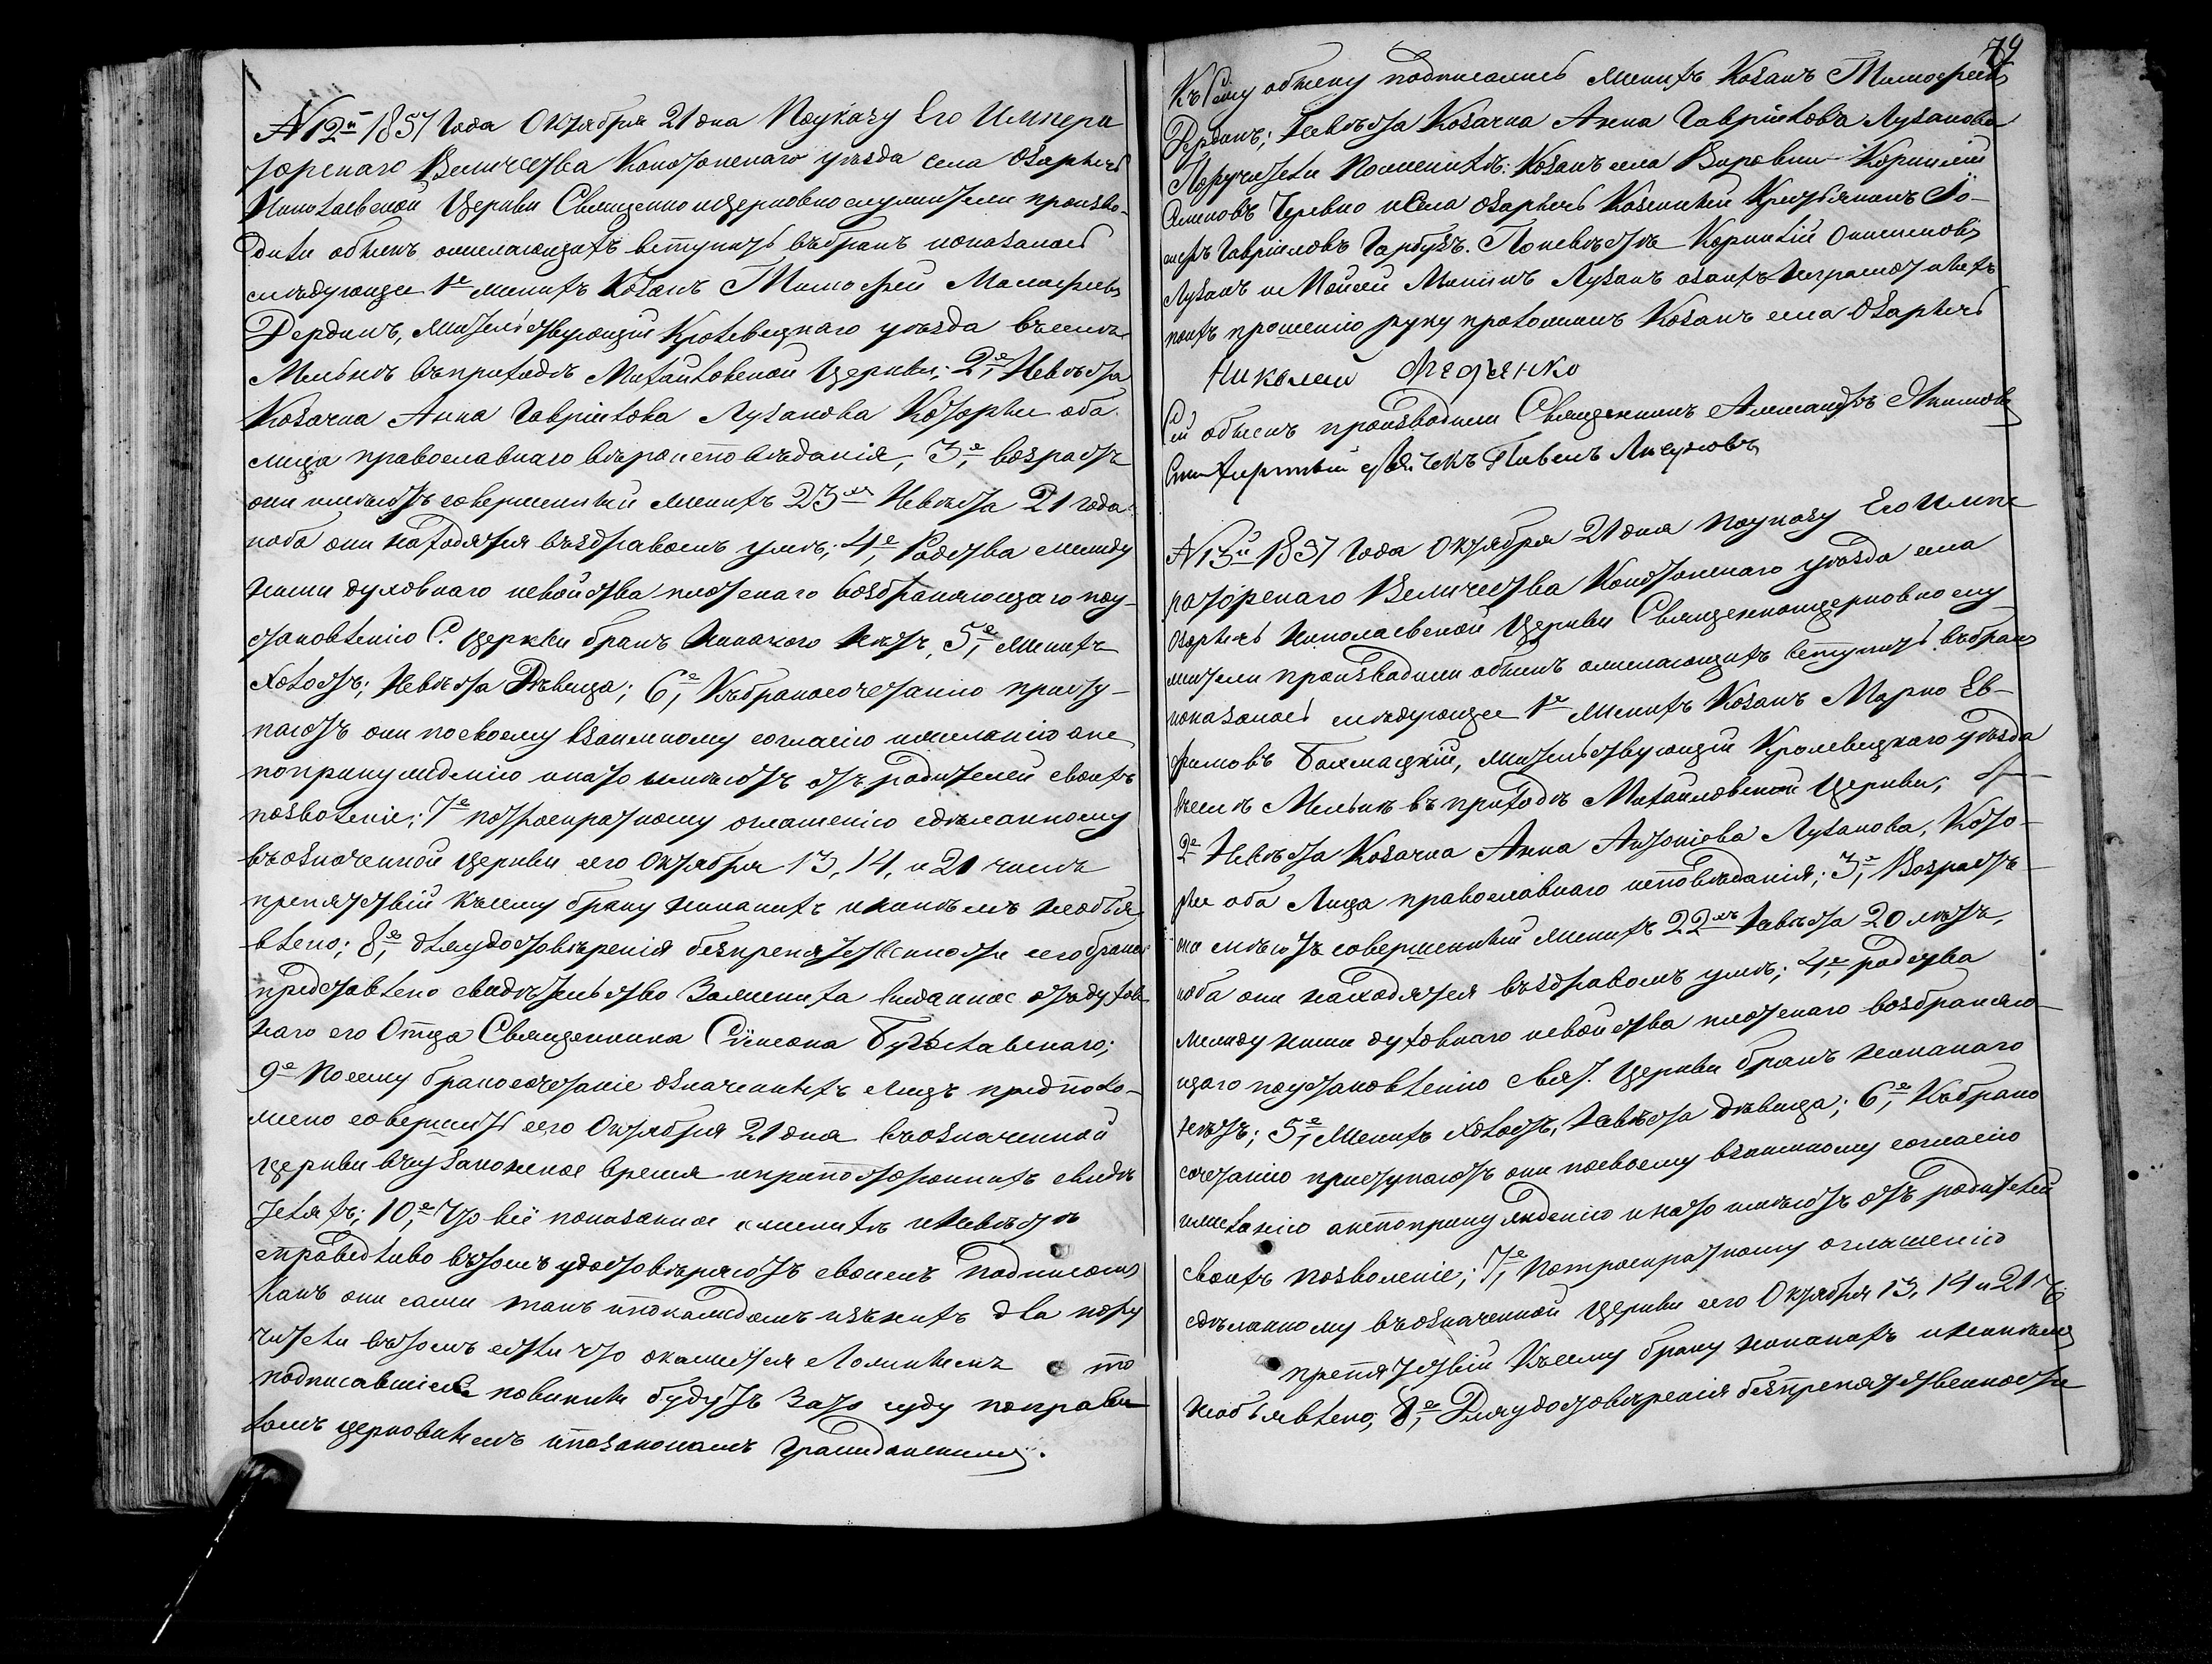 N 12й 1857 года Октября 21 дня По указу Его Импера
торскаго Величества Конотопскаго уѣзда села Озаричъ
Николаевской Церкви Священно и церковнослужители произво-
дили обыскъ о желающихъ вступить въ бракъ и показалось
слѣдующее 1е женихъ Козакъ Тимофей
Дердинъ, жительствующій Кролевецкаго уѣзда въ селѣ
Мельнѣ въ приходѣ Михайловской Церкви; 2е, Невѣста
Козачка Анна Гавріилова Лузанова Которые оба
лица православнаго вѣроисповѣданія; 3е, возрастъ
они имѣютъ совершенный женихъ 23хъ Невѣста 21 года
и оба они находятся въ здравомъ умѣ; 4е, Родства между
ними духовнаго и свойства плотскаго возбраняющаго по у-
становленію С. церкви бракъ Никакого нѣтъ, 5е, Женихъ
Холостъ; Невѣста Дѣвица; 6е, Къ бракосочетанію присту-
паютъ они по своему взаимному согласію и желанію а не
по принужденію и на то имѣютъ отъ родителей своихъ
позволеніе; 7е по троекратному оглашенію сдѣланному
въ означенной церкви сего Октября 13, 14, и 20 числѣ
препятствій къ сему браку никакихъ и никѣмъ не объя
влено; 8е, для удостовѣренія безпрепятственности сего брака
представлено свидѣтельство За жениха выданное отъ духов
наго его Отца Священника Сѵмеона Бугославскаго;
9е По сему бракосочетаніе означенныхъ лицъ предполо-
жено совершить сего Октября 21 дня въ означенной
церкви въ узаконенное время и при постороннихъ свидѣ
теляхъ; 10е, Что всё показанное о женихѣ и Невѣстѣ
справедливо въ томъ удостовѣряютъ своимъ подписомъ
какъ они сами такъ и по каждомъ изъ нихъ два пору
чители въ томъ если что окажется Ложнымъ то
подписавшіеся повинны будутъ За то суду по прави
ламъ церковнымъ и по законамъ Гражданскимъ.
79
Къ сему обыску подписались женихъ Козакъ Тимофей
Дердинъ; Невѣста Козачка Анна Гавріилова Лузанова
Поручители По женихѣ: Козакъ села Вировки Корнилій
Черевко и Села Озаричъ Казенный Крестьянинъ Іо-
сифъ Гавріиловъ Гарбузъ. По невѣстѣ Корнилій Онисимовъ
Лузанъ и Моисей Лузанъ а за нихъ неграмотныхъ
по ихъ прошенію руку приложилъ Козакъ села Озаричъ
Николай Федченко
Сей обыскъ производили Священникъ Александръ Якимовъ
Павелъ
N 13й 1857 года Октября 21 дня По указу Его Импе
раторскаго Величества Конотопскаго уѣзда села
Озаричъ Николаевской Церкви Священноцерковнослу
жители производили обыскъ о желающихъ вступить въ бракъ
и показалось слѣдующее 1е Женихъ Козакъ Марко Ев-
фимовъ Бахмацкій, жительствующій Кролевецкаго уѣзда
въ селѣ Мельнѣ въ приходѣ Михайловской Церкви,
2е Невѣста Козачка Анна Антоніева Лузанова, Кото-
рые оба Лица православнаго исповѣданія; 3е, Возрастъ
они имѣютъ совершенный женихъ 22хъ Невѣста 20 лѣтъ,
и оба они находятся въ здравомъ умѣ; 4е, родства
между ними духовнаго и свойства плотскаго возбраняю
щаго по установленію свят. Церкви бракъ никакаго
нѣтъ; 5е, Женихъ холостъ, Невѣста дѣвица; 6е, Къ брако
сочетанію приступаютъ они по своему взаимному согласію
и желанію а не по принужденію и на то имѣютъ отъ родителей
своихъ позволеніе; 7е, По троекратному оглашенію
сдѣланному въ означенной Церкви сего Октября 13, 14 и 21
препятствій Къ сему браку никакихъ и никѣмъ
необъявлено; 8е, Для удостовѣренія безпрепятственности